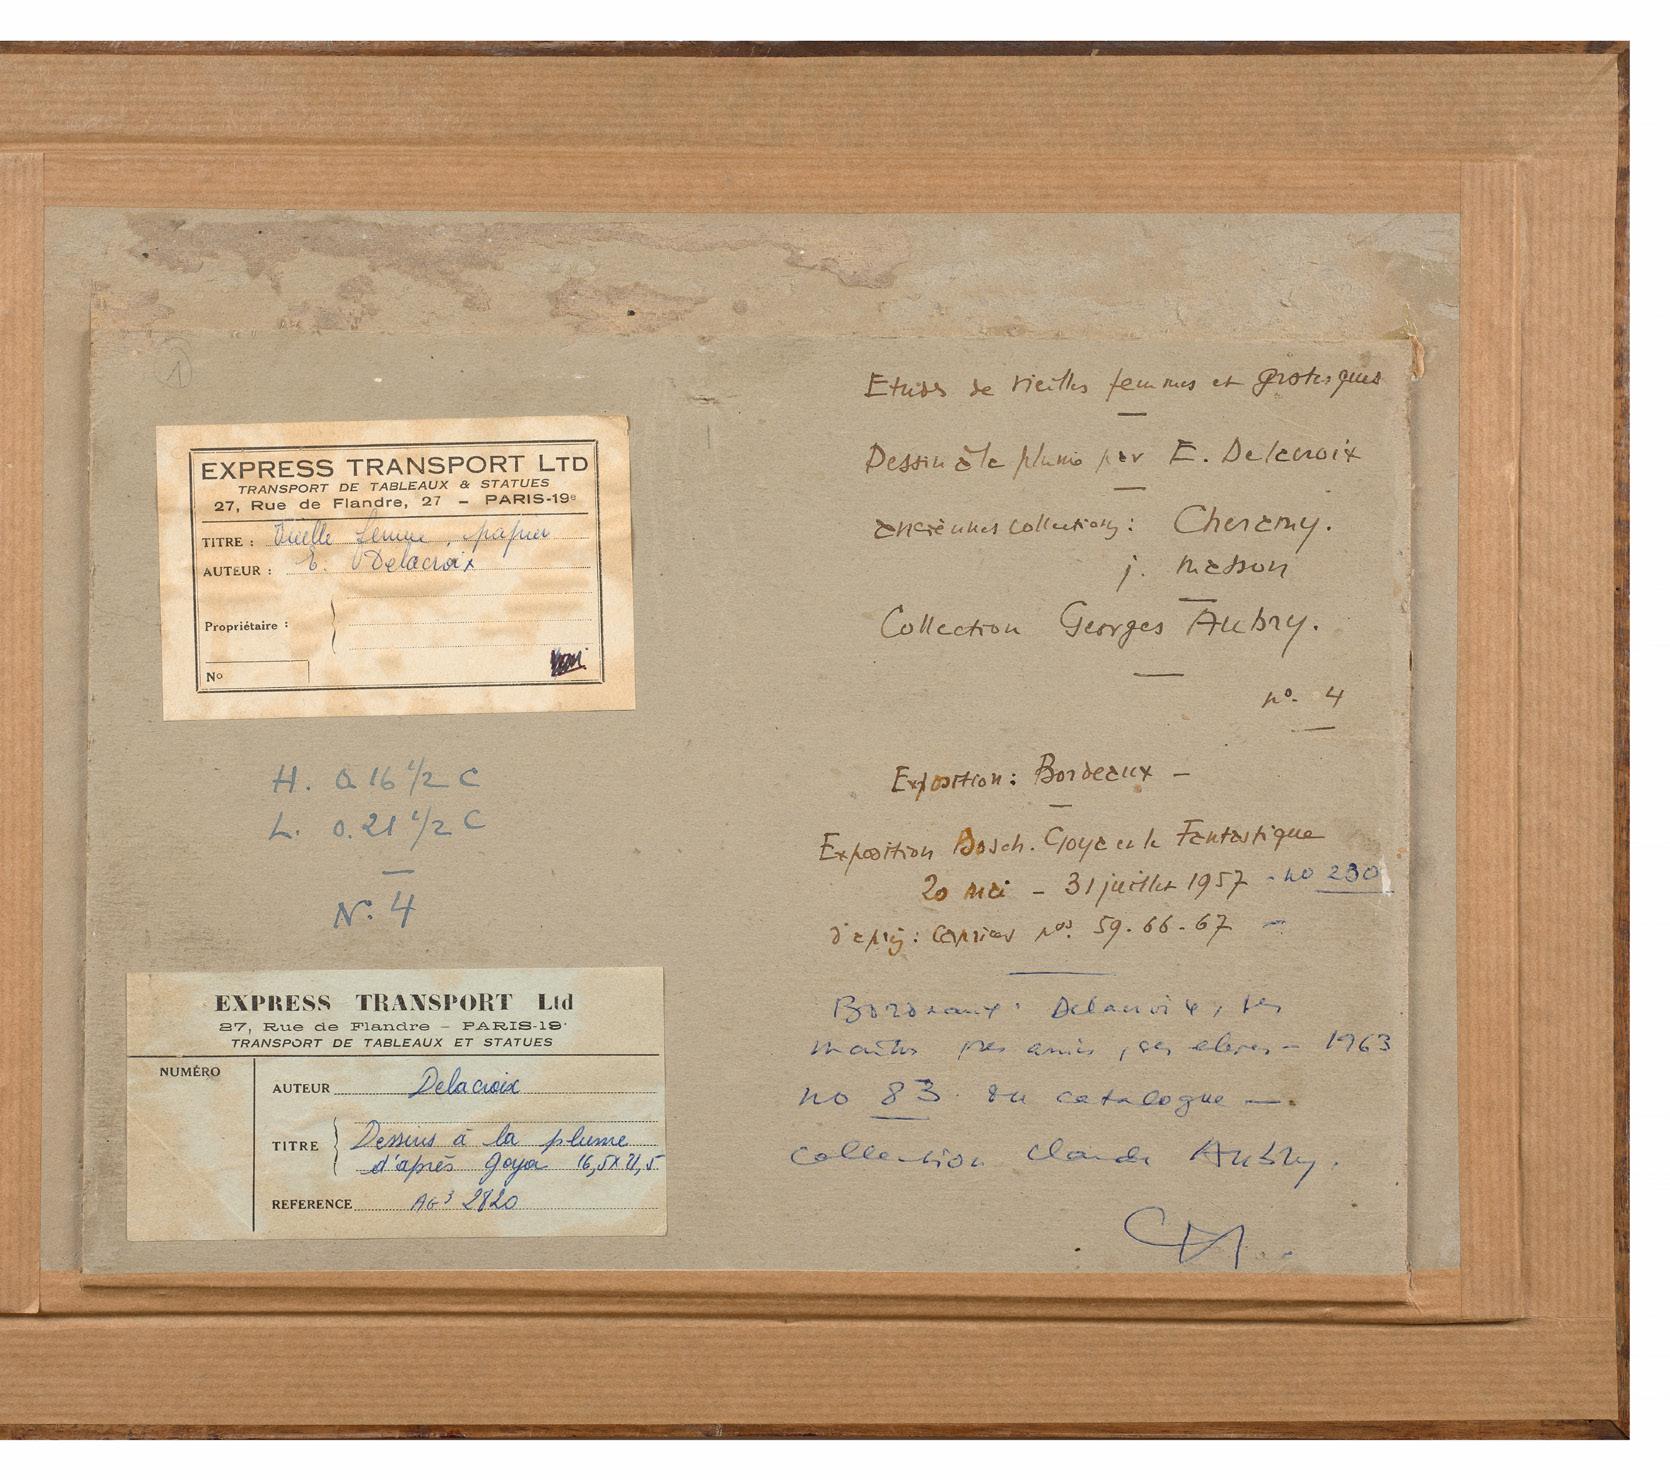 1
EXPRESS TRANSPORT LTD
TRANSPORT DE TABLEAUX & STATUES
27, Rue de Flandre, 27 – PARIS-19e
TITRE : Vieille femme, papier
AUTEUR : E. Delacroix
Propriétaire :
No
H. 0.16 1/2 C
L. 0.21 1/2 C
N. 4
EXPRESS TRANSPORT Ltd
27, Rue de Flandre – PARIS-19e
TRANSPORT DE TABLEAUX ET STATUES
NUMÉRO
AUTEUR Delacroix
TITRE Dessins à la plume
d'après Goya 16,5 x 21,5
REFERENCE AG3 2820
Etudes de vieilles femmes et grotesques
Dessin à la plume par E. Delacroix
anciennes collections : Cheramy.
j. masson
Collection Georges Aubry.
no. 4
Exposition : Bordeaux –
Exposition Bosch. Goya et le Fantastique
20 mai – 31 juillet 1957 - no 230
d'après : Caprices nos. 59. 66 - 67 –
Bordeaux : Delacroix, ses
maîtres, ses amis, ses eleves – 1963
no 83 du catalogue –.
collection Claude Aubry.